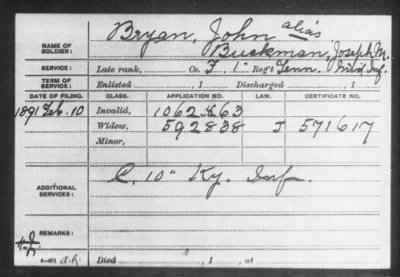 Bryan, John alias
NAME OF SOLDIER: Buckman, Joseph M.
SERVICE: Late rank, Co. F, 1" Reg't Tenn. Inf.
TERM OF SERVICE: Enlisted , 1 Discharged , 1
DATE OF FILING. CLASS. APPLICATION NO. LAW. CERTIFICATE NO.
1891 Feb. 10 Invalid, 1062663
Widow, 592838 J 571617
Minor,
ADDITIONAL SERVICES: C. 10" Ky. Inf.
REMARKS:
Died , 1 , at